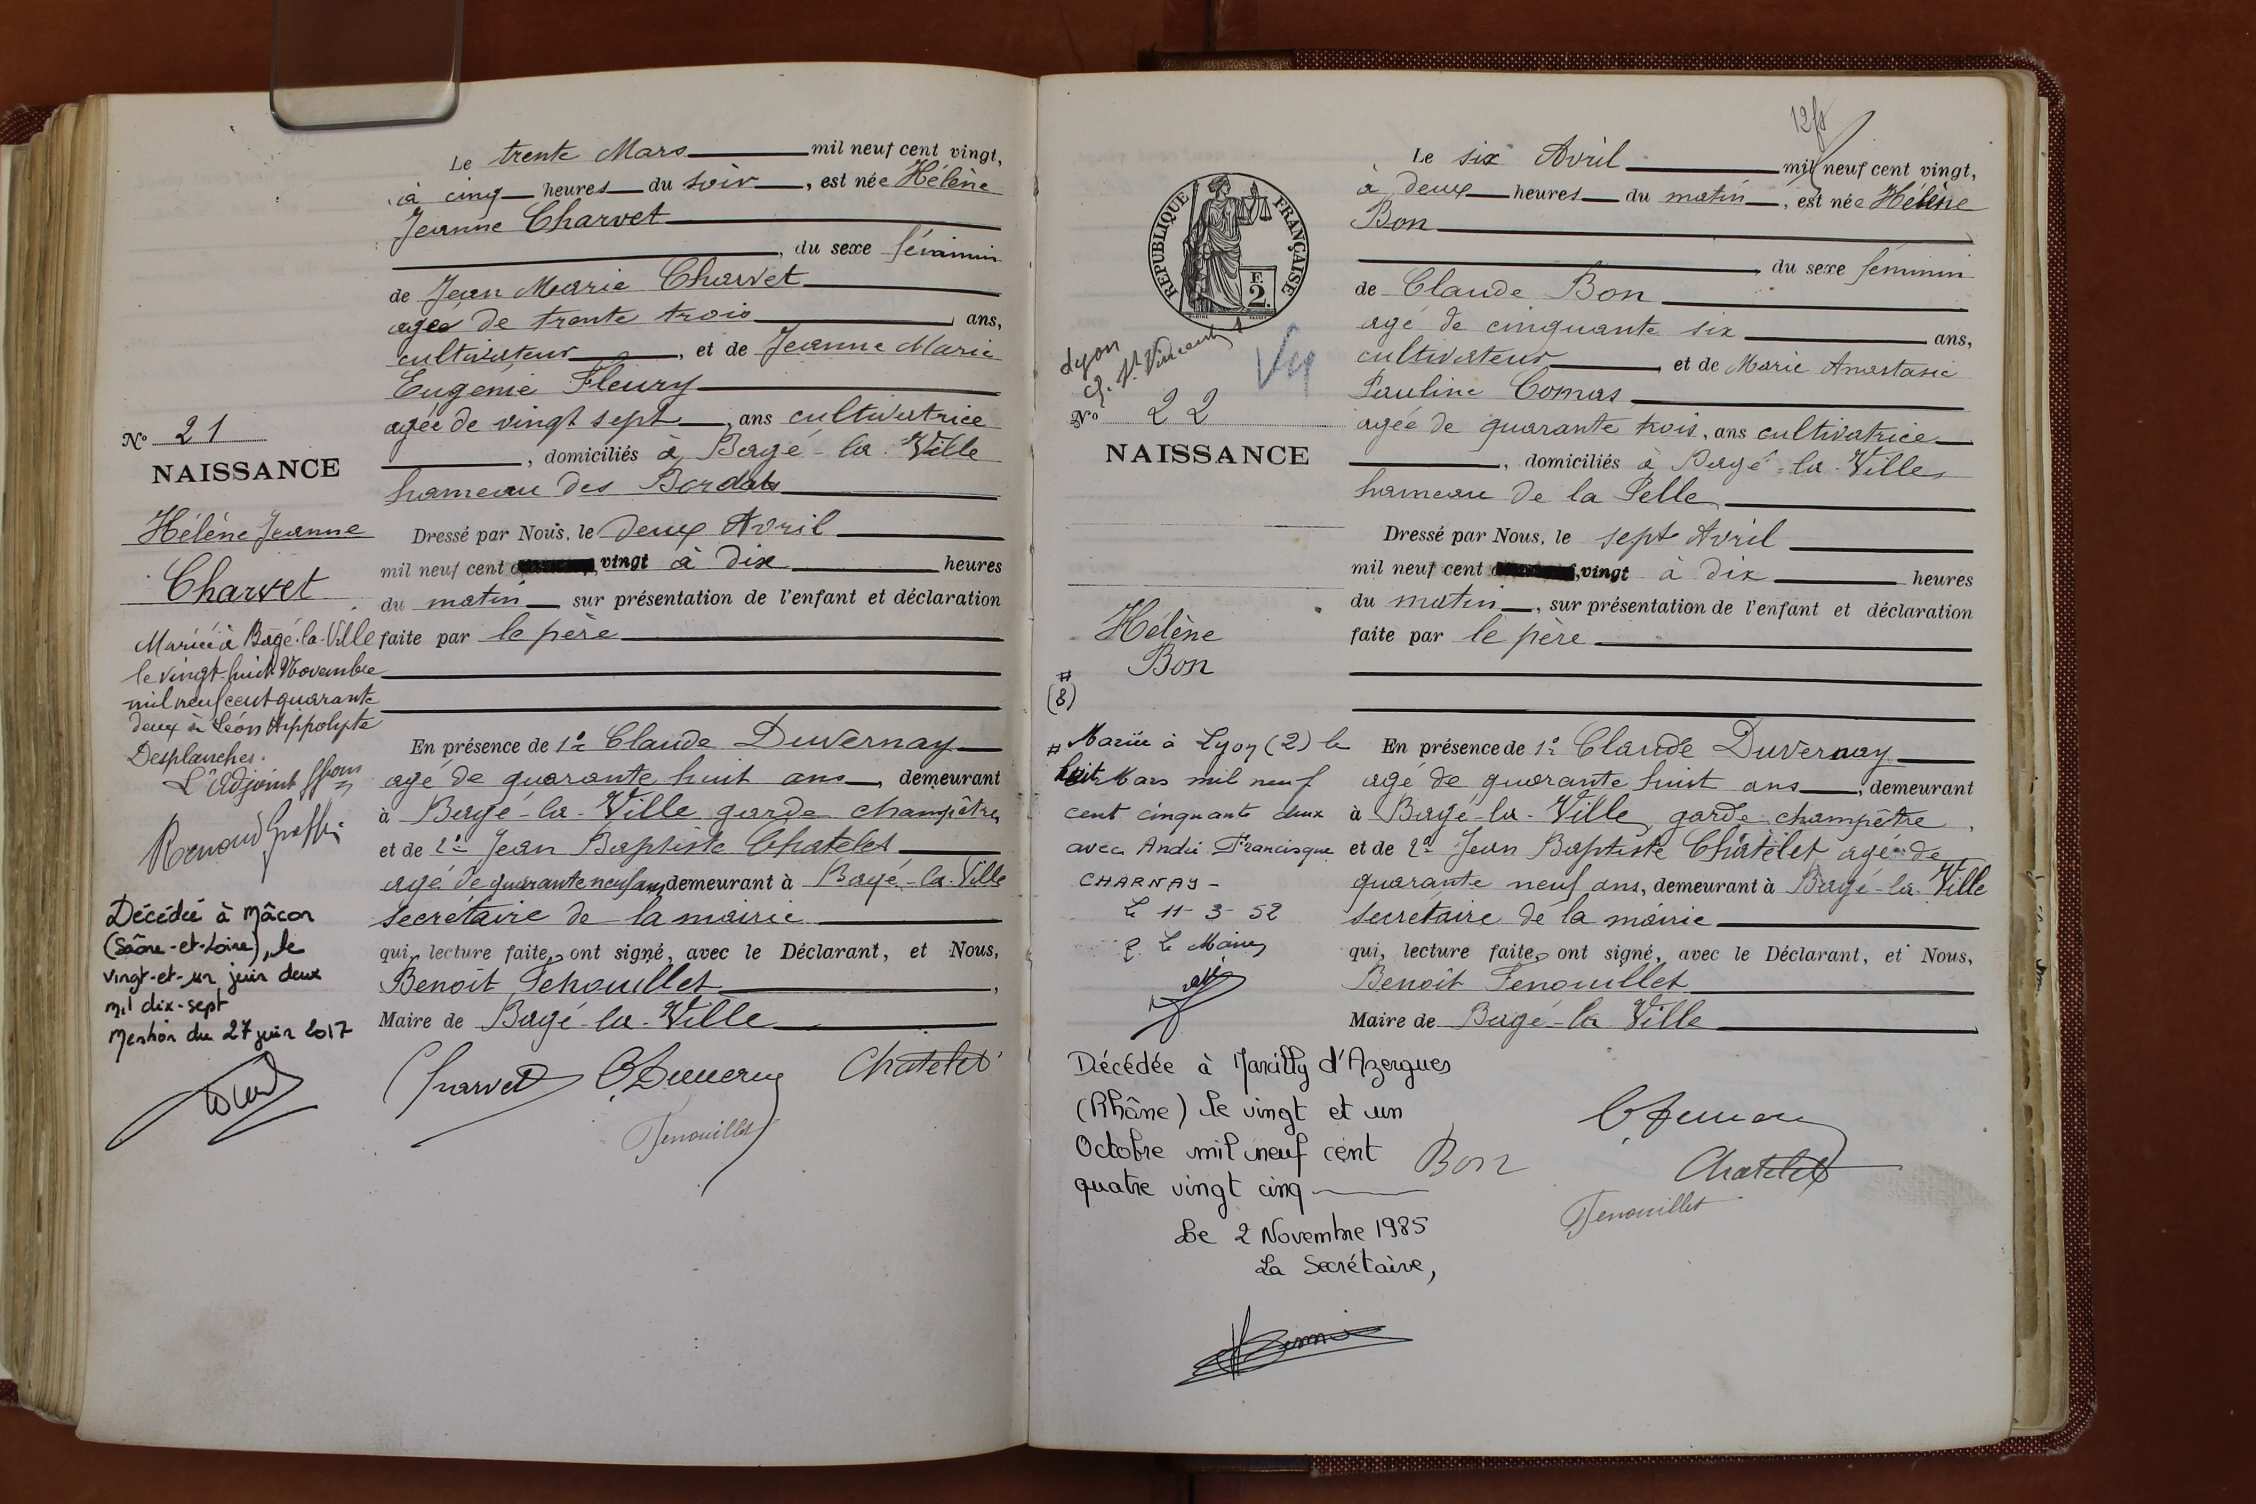 Le trente Mars mil neuf cent vingt,
à cinq heures du soir, est née Hélène
Jeanne Charvet
, du sexe féminin
de Jean Marie Charvet
agé de trente trois ans,
cultivateur, et de Jeanne Marie
Eugénie Fleury
agée de vingt sept, ans cultivatrice
, domiciliés à Bagé-la-Ville
hameau des Bordats
No 21
NAISSANCE
Hélène Jeanne
Charvet
Dressé par Nous, le deux Avril
mil neuf cent vingt à dix heures
du matin sur présentation de l'enfant et déclaration
faite par le père
Mariée à Bagé-la-Ville
le vingt-huit Novembre
mil neuf cent quarante
deux à Léon Hippolyte
Desplanches.
L'adjoint
En présence de 1o Claude Duvernay
agé de quarante huit ans, demeurant
à Bagé-la-Ville garde champêtre
et de 2o Jean Baptiste Chatelet
agé de quarante neuf ans demeurant à Bagé-la-Ville
secrétaire de la mairie
qui, lecture faite, ont signé, avec le Déclarant, et Nous,
Benoit Fenouillet,
Maire de Bagé-la-Ville
Décédée à Mâcon
(Saône-et-Loire), le
vingt-et-un juin deux
mil dix-sept
Mention du 27 juin 2017
Charvet C. Duvernay Chatelet
Fenouillet
RÉPUBLIQUE FRANÇAISE
F.
2.
Lyon
No 22
NAISSANCE
Hélène
Bon
Le six Avril mil neuf cent vingt,
à deux heures du matin, est née Hélène
Bon
du sexe féminin
de Claude Bon
agé de cinquante six ans,
cultivateur, et de Marie Anastasie
Pauline Comas
agée de quarante trois, ans cultivatrice
, domiciliés à Bagé-la-Ville,
hameau de la Pelle
Dressé par Nous, le sept Avril
mil neuf cent vingt à dix heures
du matin, sur présentation de l'enfant et déclaration
faite par le père
#
(8)
# Mariée à Lyon (2) le
huit Mars mil neuf
cent cinquante deux
avec André Francisque
CHARNAY -
Le 11-3-52
P. Le Maire,
En présence de 1o Claude Duvernay
agé de quarante huit ans, demeurant
à Bagé-la-Ville, garde champêtre,
et de 2o Jean Baptiste Châtelet agé de
quarante neuf ans, demeurant à Bagé-la-Ville
secretaire de la mairie
qui, lecture faite, ont signé, avec le Déclarant, et Nous,
Benoît Fenouillet
Maire de Bagé-la-Ville
Décédée à Marcilly d'Azergues
(Rhône) le vingt et un
Octobre mil neuf cent
quatre vingt cinq
Le 2 Novembre 1985
La Secrétaire,
Bon
Chatelet
Fenouillet